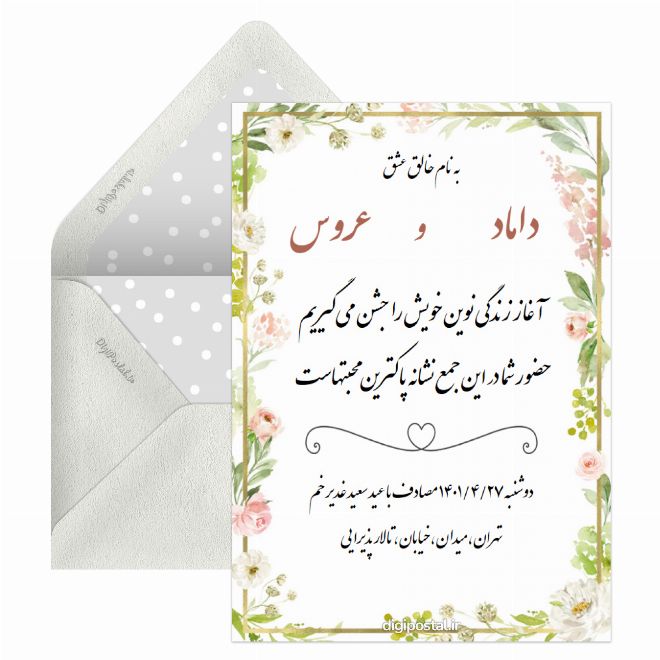 به نام خالق عشق
داماد و عروس
آغاز زندگی نوین خویش را جشن می گیریم
حضور شما در این جمع نشانه پاکترین محبتهاست
دوشنبه ۱۴۰۱/۴/۲۷ مصادف با عید سعید غدیر خم
تهران، میدان، خیابان، تالار پذیرایی
digipostal.ir
DigiPostal.ir
DigiPostal.ir